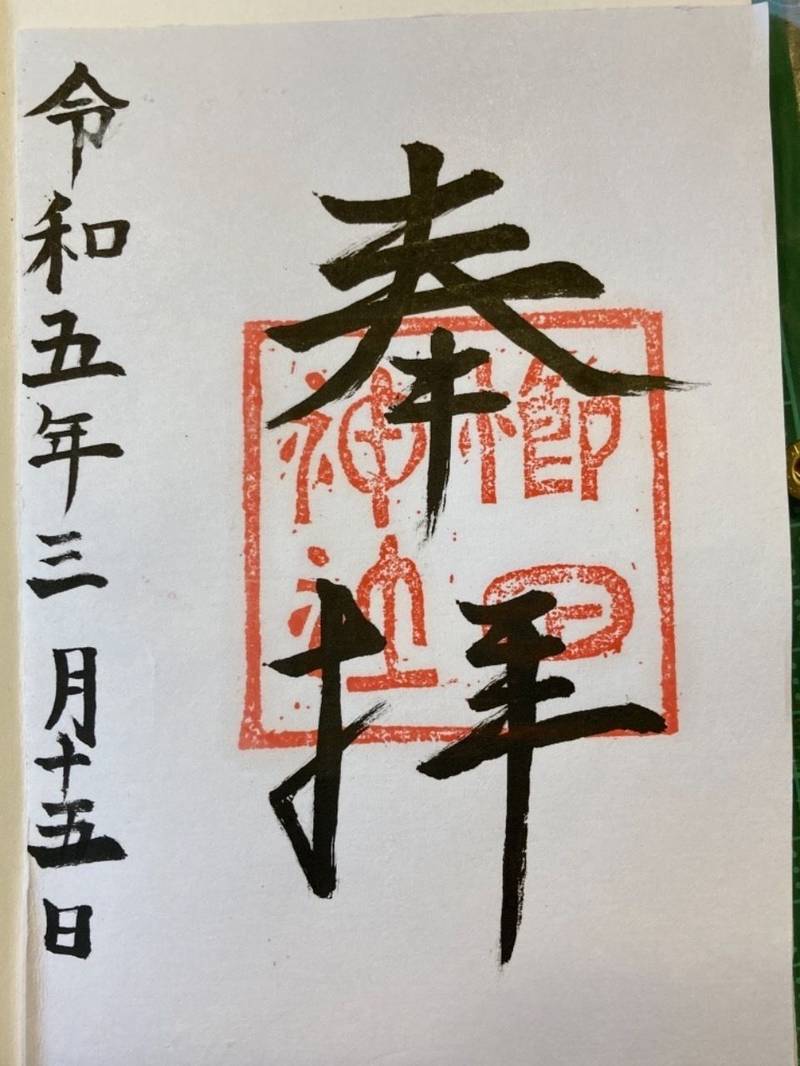 奉拝
櫛田
神社
令和五年三月十五日